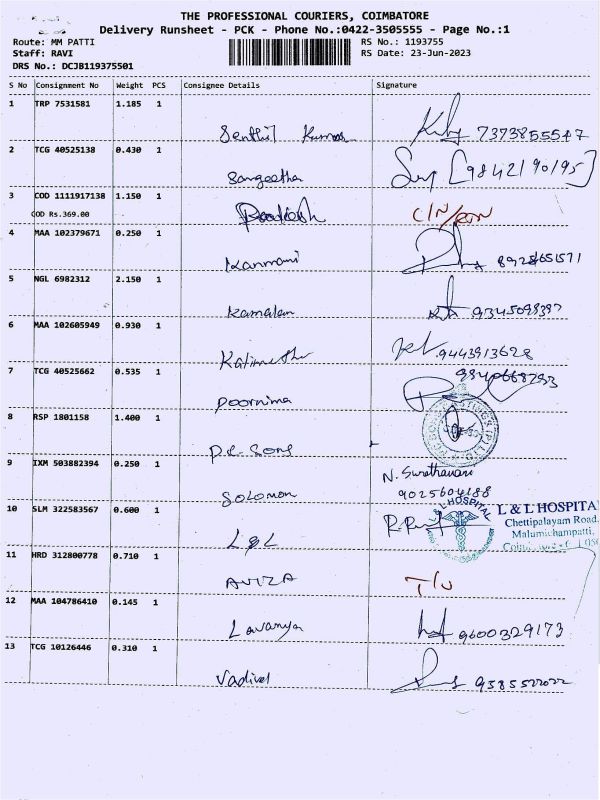 THE PROFESSIONAL COURIERS, COIMBATORE
Delivery Runsheet - PCK - Phone No.:0422-3505555 - Page No.:1
Route: MM PATTI RS No.: 1193755
Staff: RAVI RS Date: 23-Jun-2023
DRS No.: DCJB119375501
S No Consignment No Weight PCS Consignee Details Signature
1 TRP 7531581 1.185 1
Senthil Kumar 7373855547
2 TCG 40525138 0.430 1
Sangeetha [9842190195]
3 COD 1111917138 1.150 1
COD Rs.369.00 Pradeesh
4 MAA 102379671 0.250 1
Kanmani
5 NGL 6982312 2.150 1
Kamalam 9345098397
6 MAA 102605949 0.930 1
9443913628
7 TCG 40525662 0.535 1
Poornima
8 RSP 1801158 1.400 1
P.L. Sons
9 IXM 503882394 0.250 1 N.
Solomon 9025604188
10 SLM 322583567 0.600 1 L & L HOSPITAL
L & L HOSPITA
Chettipalayam Road,
Malumichampatti,
L&L
11 HRD 312800778 0.710 1
AVIZA
12 MAA 104786410 0.145 1
Lavanya 9600329173
13 TCG 10126446 0.310 1
Vadivel 9585522022